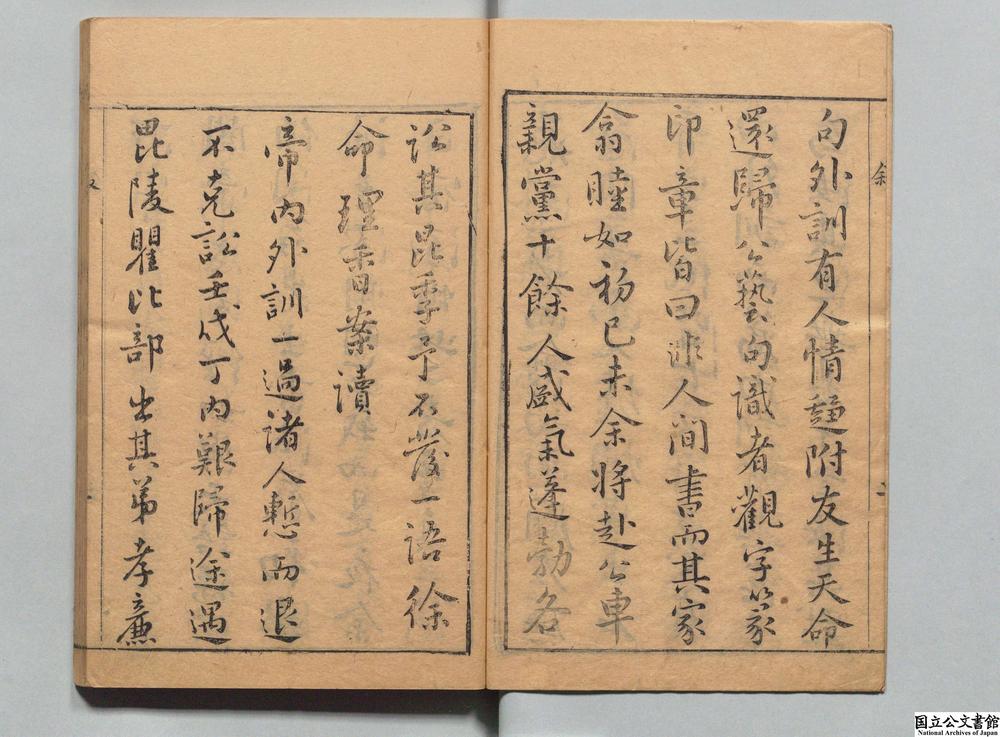 句外訓有人情趨附友生天命
還歸公藝句識者觀字篆
印章皆曰非人間書而其家
翕睦如初已未余將赴公車
親黨十餘人盛氣蓬勃各
訟其昆季予不發一語徐
命理香案讀
帝内外訓一過諸人慙而退
不克訟壬戌丁内艱歸途遇
毘陵瞿比部出其弟孝廉
国立公文書館
National Archives of Japan